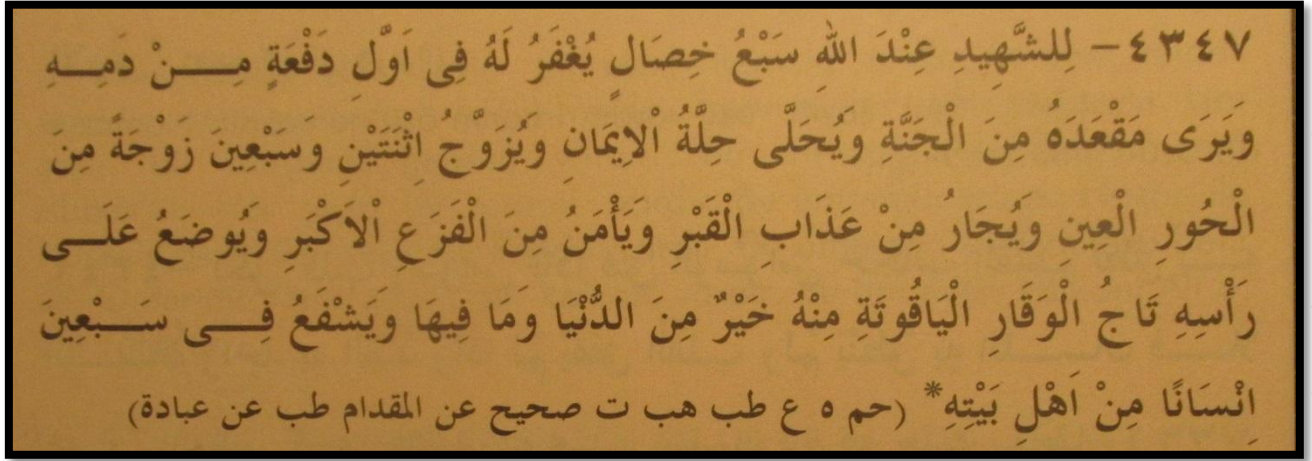 ٤٣٤٧– لِلشَّهِيدِ عِنْدَ اللهِ سَبْعُ خِصَالٍ يُغْفَرُ لَهُ فِى اَوَّلِ دَفْعَةٍ مِـــنْ دَمِـــهِ
وَيَرَى مَقْعَدَهُ مِنَ الْجَنَّةِ وَيُحَلَّى حِلَّةُ اْلاِيَمَانِ وَيُزَوَّجُ اِثْنَتَيْنِ وَسَبْعِينَ زَوْجَةً مِنَ
الْحُورِ الْعِينِ وَيُجَارُ مِنْ عَذَابِ الْقَبْرِ وَيَأْمَنُ مِنَ الْفَزَعِ اْلاَكْبَرِ وَيُوضَعُ عَلَـــى
رَأْسِهِ تَاجُ الْوَقَارِ الْيَاقُوتَةِ مِنْهُ خَيْرٌ مِنَ الدُّنْيَا وَمَا فِيهَا وَيَشْفَعُ فِـــى سَـــبْعِينَ
اِنْسَانًا مِنْ اَهْلِ بَيْتِهِ* (حم ه ع طب هب ت صحيح عن المقدام طب عن عبادة)